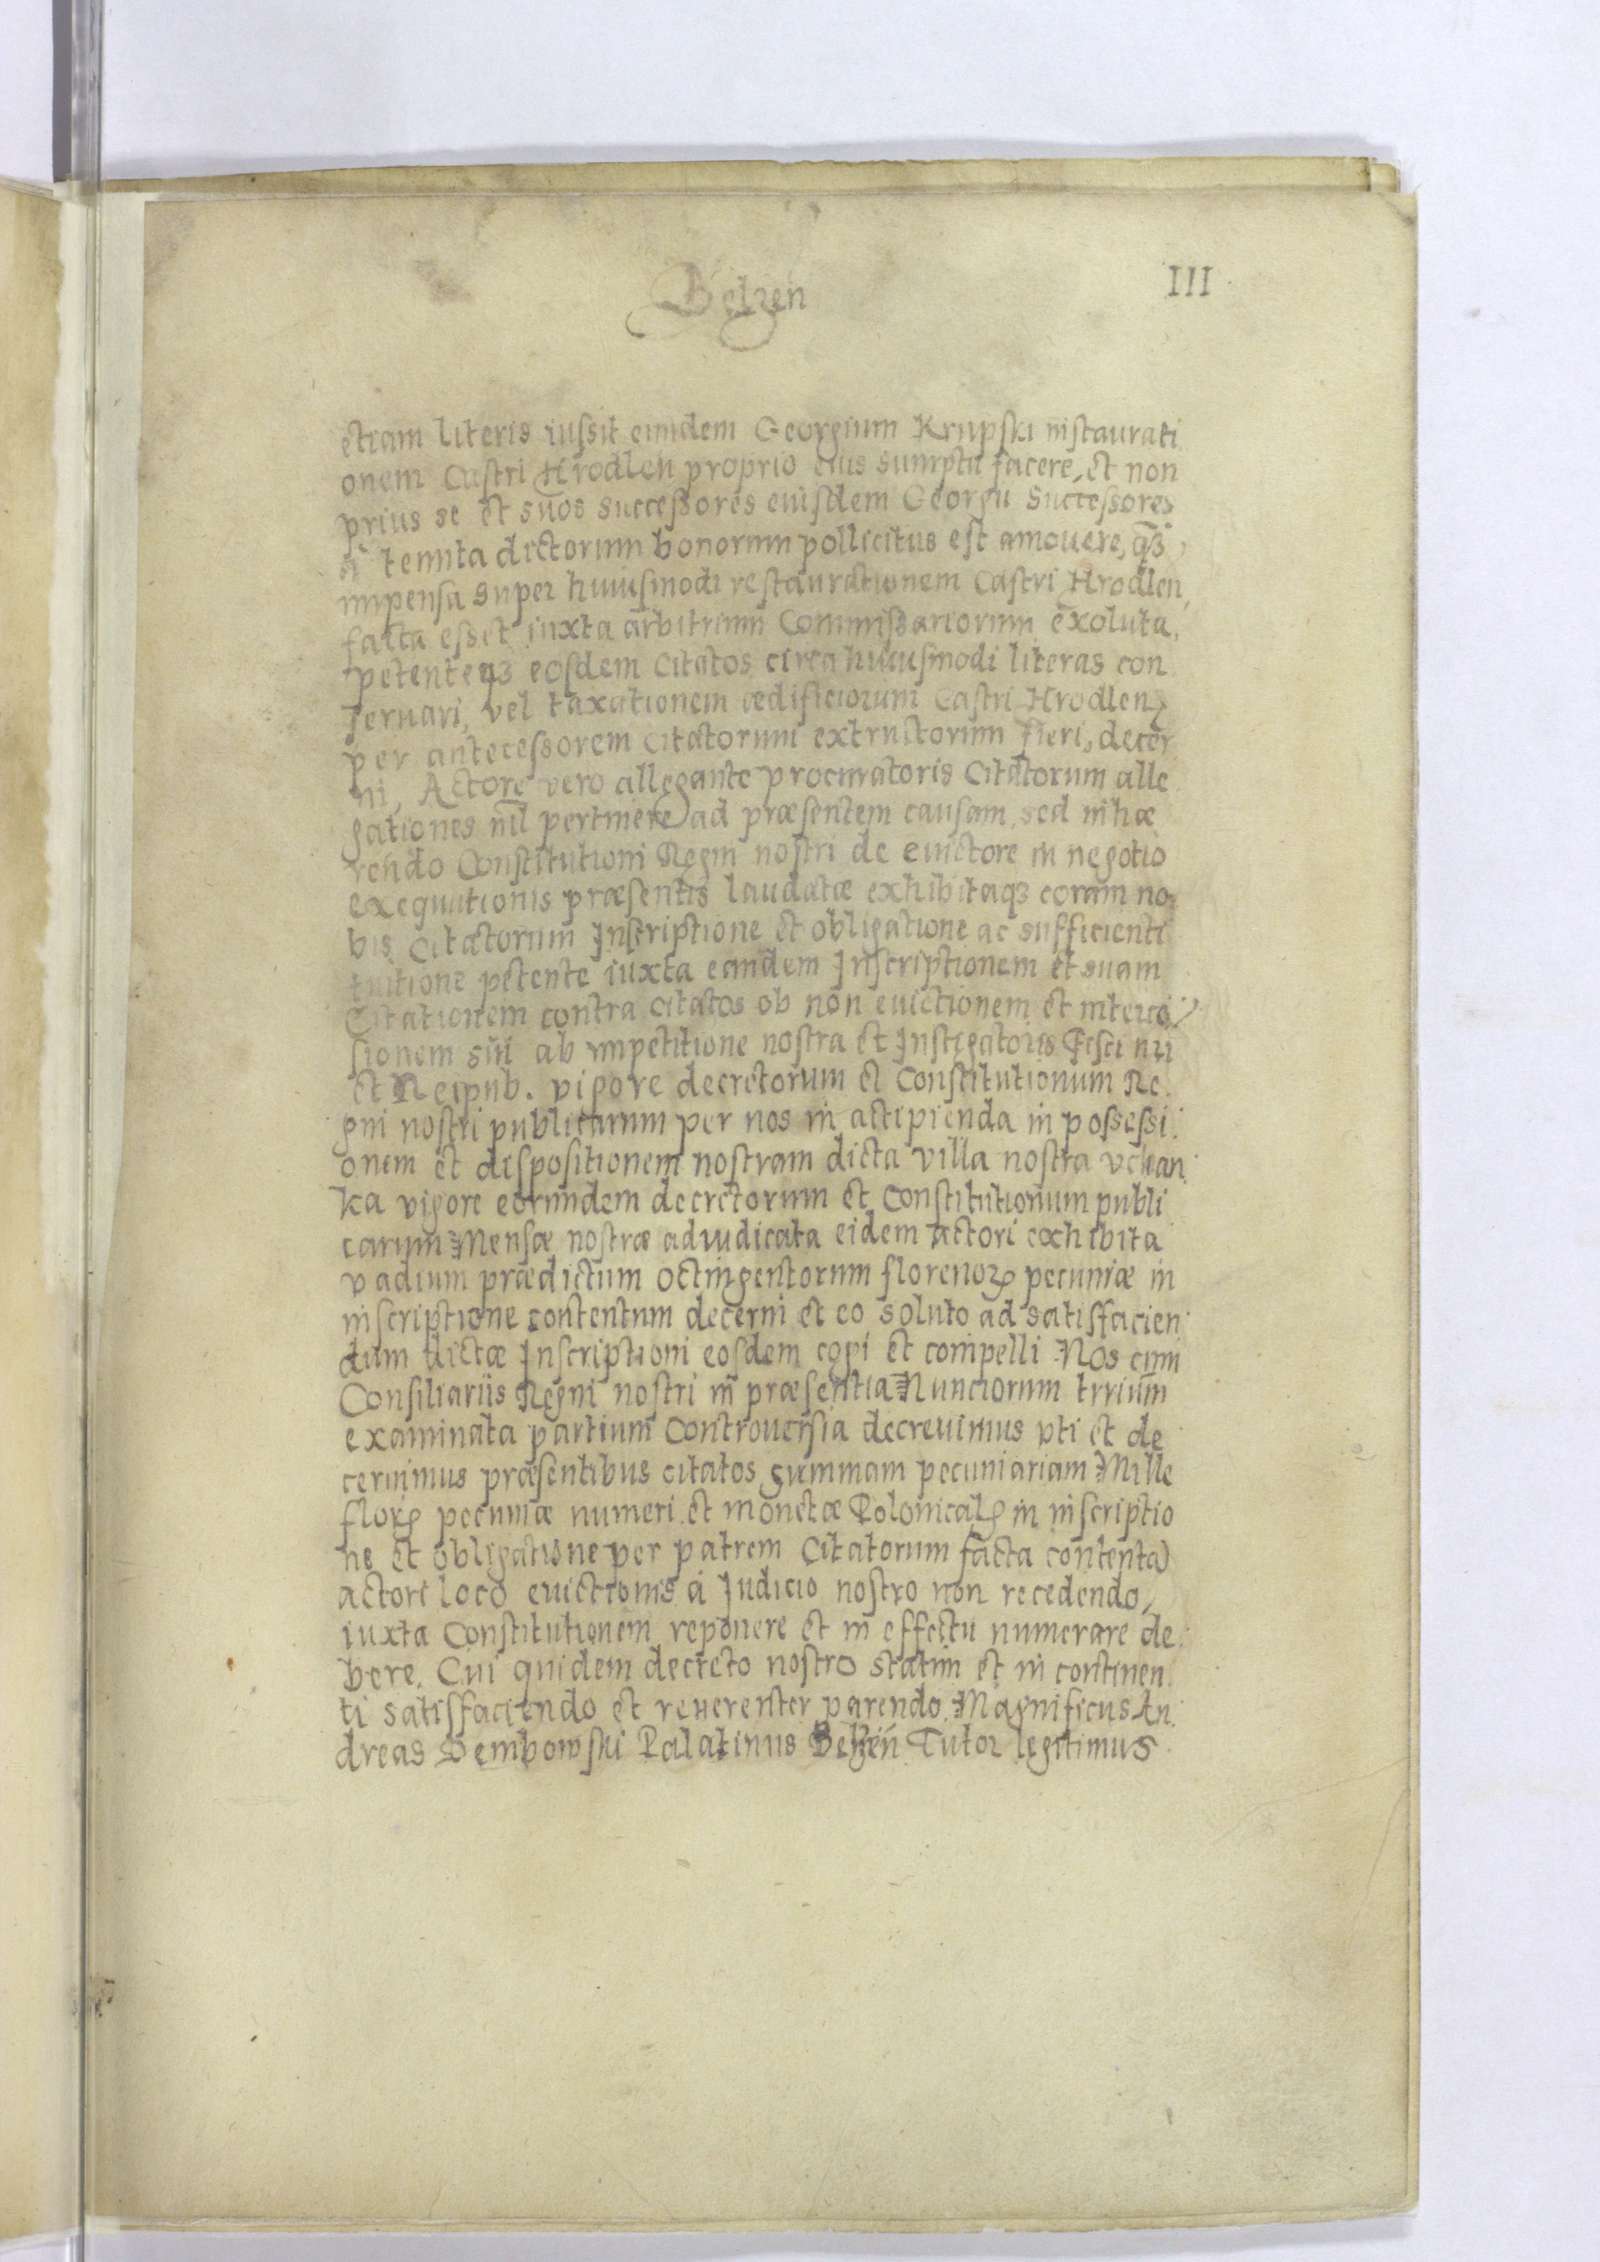 Belzen
III
etiam literis iussit eundem Georgium Krupski instaurati
onem Castri Hrodlen proprio eius sumptu facere, et non
prius se et suos successores eiusdem Georgii Successores
à tenuta dictorum bonorum pollicitus est amouere, qȝ
impensa super huiusmodi restaurationem Castri Hrodlen,
facta esset iuxta arbitrium Commissariorum exoluta,
petentesqȝ eosdem Citatos circa huiusmodi literas con
seruari, vel taxationem ædificiorum Castri Hrodlen,
per antecessorem Citatorum extructorum fieri, decer
ni, Actore vero allegante procuratoris Citatorum alle
gationes nil pertinere ad præsentem causam, sed inhæ
rendo Constitutioni Regni nostri de euictore in negotio
exequutionis præsentis laudatæ exhibitaqȝ coram no
bis Citatorum Inscriptione et obligatione ac sufficienti
tuitione petente iuxta eandem Inscriptionem et suam
Citationem contra Citatos ob non euictionem et interces
sionem sui ab impetitione nostra et Instigatoris Fisci nri
et Reipub. vigore decretorum et Constitutionum Re
gni nostri publicarum per nos in accipienda in possessi
onem et dispositionem nostram dicta villa nostra vchan
ka vigore eorundem decretorum et Constitutionum publi
carum Mensæ nostræ adiudicata eidem actori exhibita
vadium prædictum octingentorum florenoꝝ pecuniæ in
inscriptione contentum decerni et eo soluto ad satisfacien
dum dictæ Inscriptioni eosdem cogi et compelli Nos cum
Consiliariis Regni nostri in præsentia Nunciorum trrium
examinata partium Controuersia decreuimus pti et de
cernimus præsentibus citatos summam pecuniariam Mille
floꝝ pecuniæ numeri et monetæ Polonicalꝝ in inscriptio
ne et obligatione per patrem Citatorum facta contenta
actori loco euictionis á Judicio nostro non recedendo,
iuxta Constitutionem reponere et in effectu numerare de
bere. Cui quidem decreto nostro statim et in continen
ti satisfaciendo et reuerenter parendo Magnificus An
dreas Dembowski Palatinus Belzen Tutor legitimus